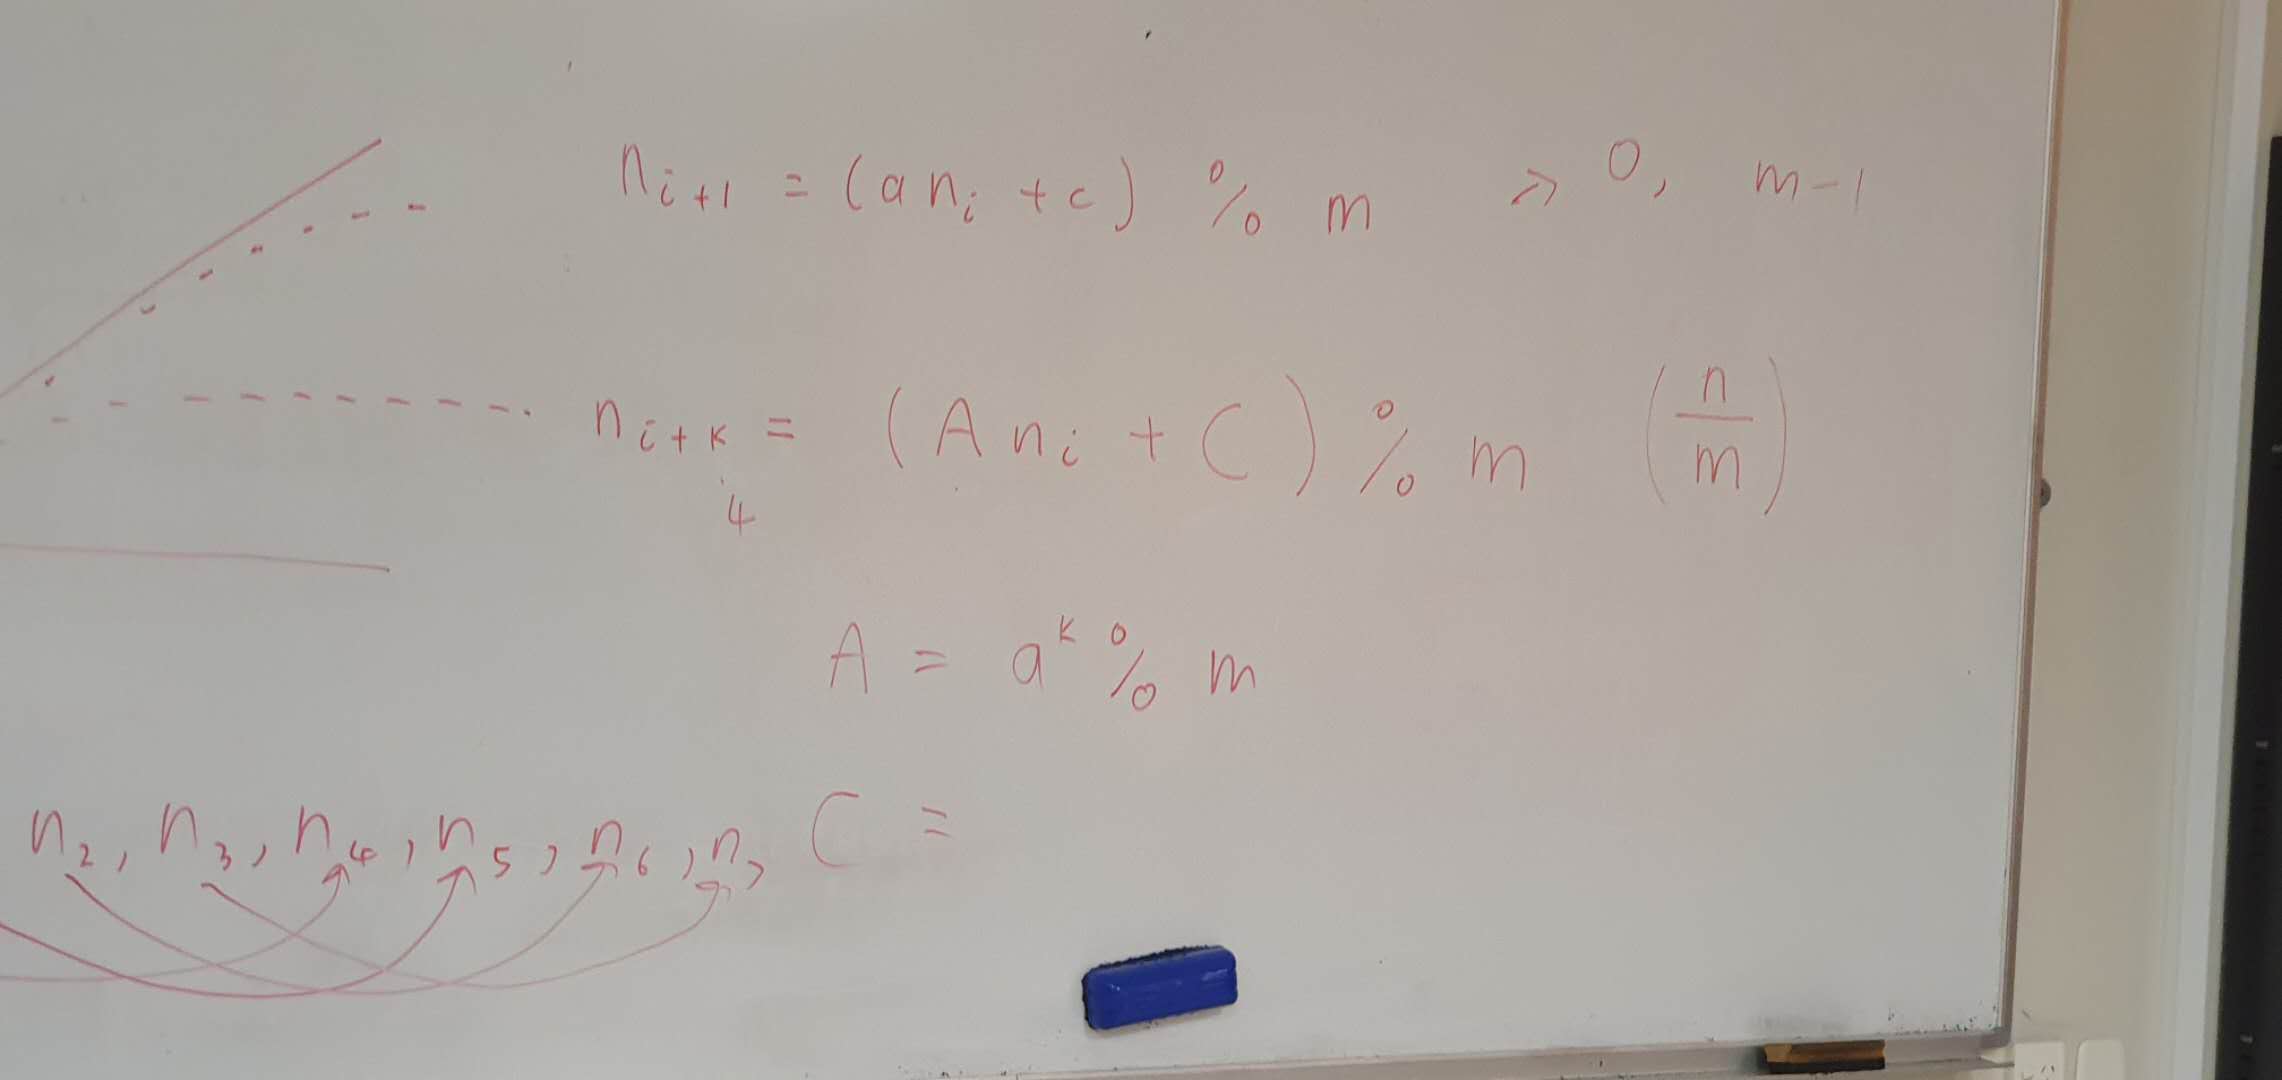 n_{i+1} = (a n_i + c) % m » 0, m-1
n_{i+k} = (A n_i + C) % m (n/m)
4
A = a^k % m
n_2, n_3, n_4, n_5, n_6, n_7 C =